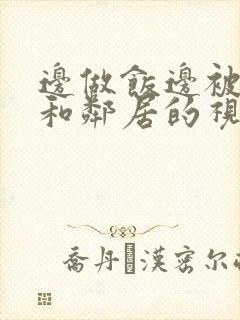 邊做飯邊被
和鄰居的視
喬丹 漢密尔